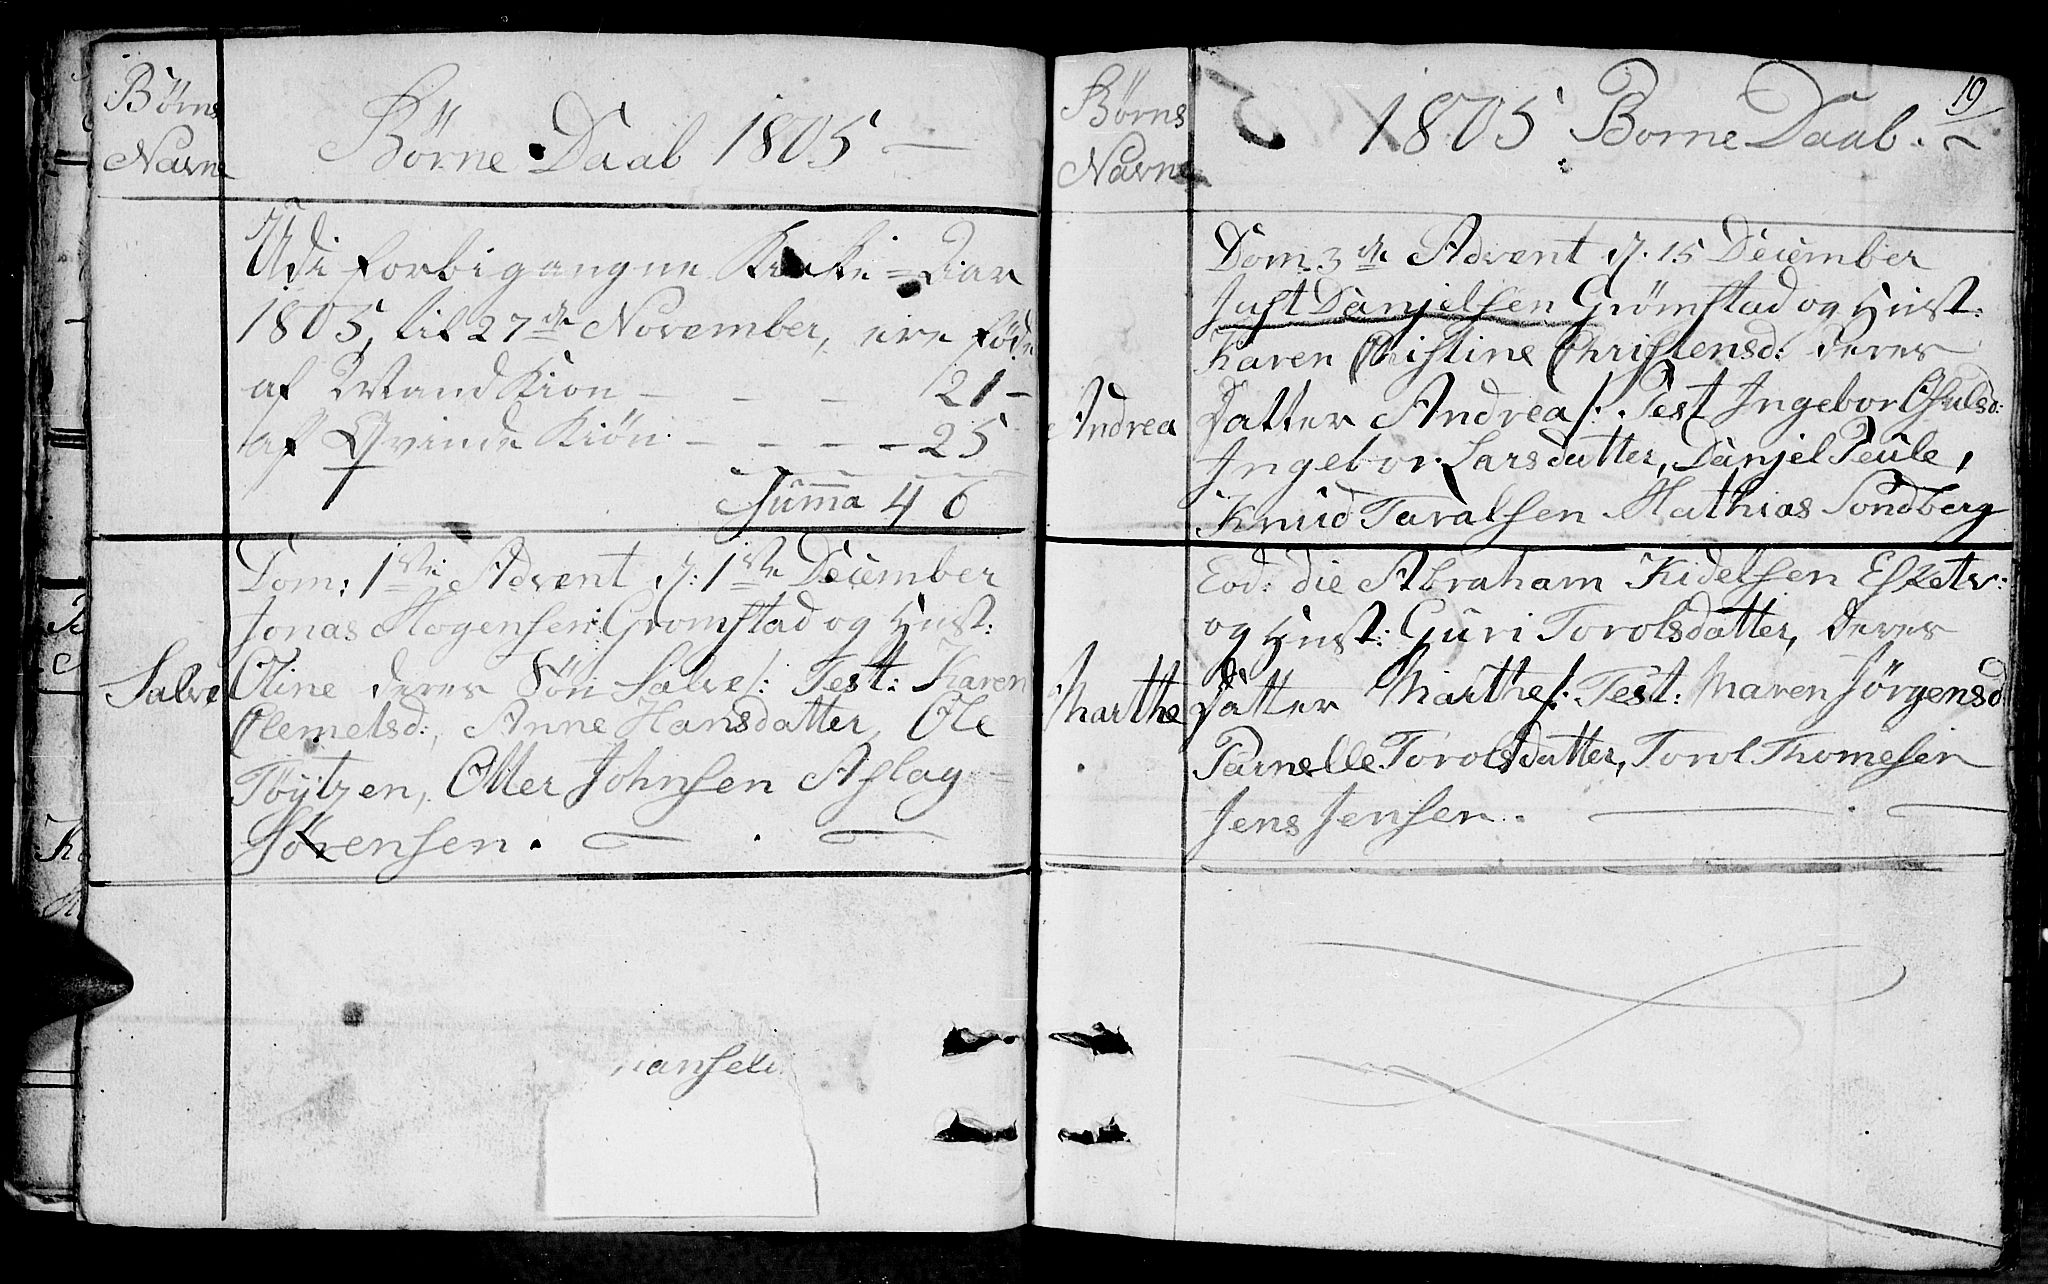 Børns
Navne
Børne Daab 1805
Udi forbigangne Kirke=Aar
1805, til 27de November, ere föde
af MandKiön - - - 21 -
af Qvinde Kiön - - - - 25
Summa 46
Dom: 1ste Advent d: 1ste December
Jonas Mogensen Gromstad og Hust:
Salve
Oline deres Sön Salve/: Test: Karen
Clemetsd:, Anne Hansdatter, Ole
Töytzen, Otter Johnsen Aslag
Sörensen.
Børns
Navne
1805 Borne Daab.
19
Dom. 3de Advent d. 15 December
Just Danjelsen Grømstad og Hust:
Karen Christine Christensd: deres
Andrea
Datter Andrea/: Test Ingebor
Ingebor Larsdatter, Danjel Peule,
Knud Taralsen Mathias Sondberg
Eod: die Abraham Kidelsen Esketv:
og Hust: Guri Torolsdatter, deres
Marthe
Datter Marthe/: Test: Maren Jörgensd:
Parnelle Torolsdatter, Torol Thomesen
Jens Jensen.